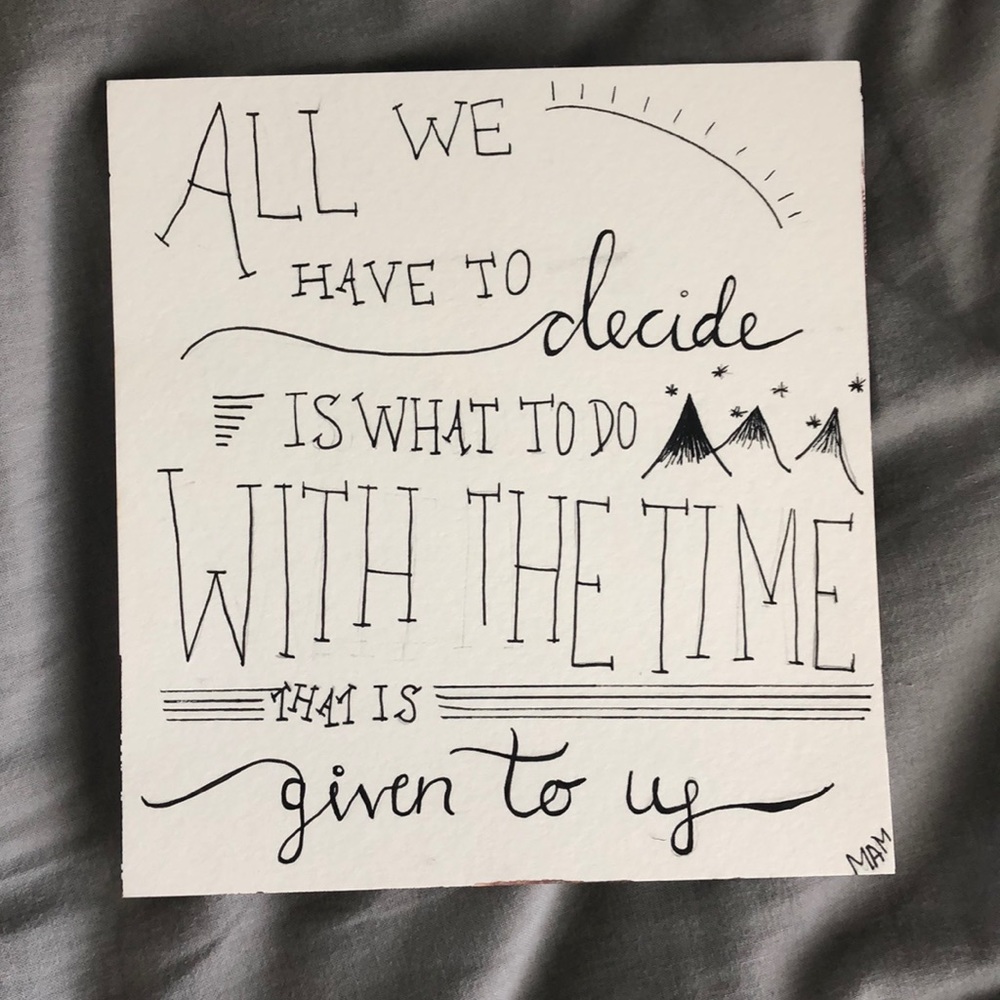 ALL WE
HAVE TO decide
IS WHAT TO DO
WITH THE TIME
THAT IS
given to us
MAM